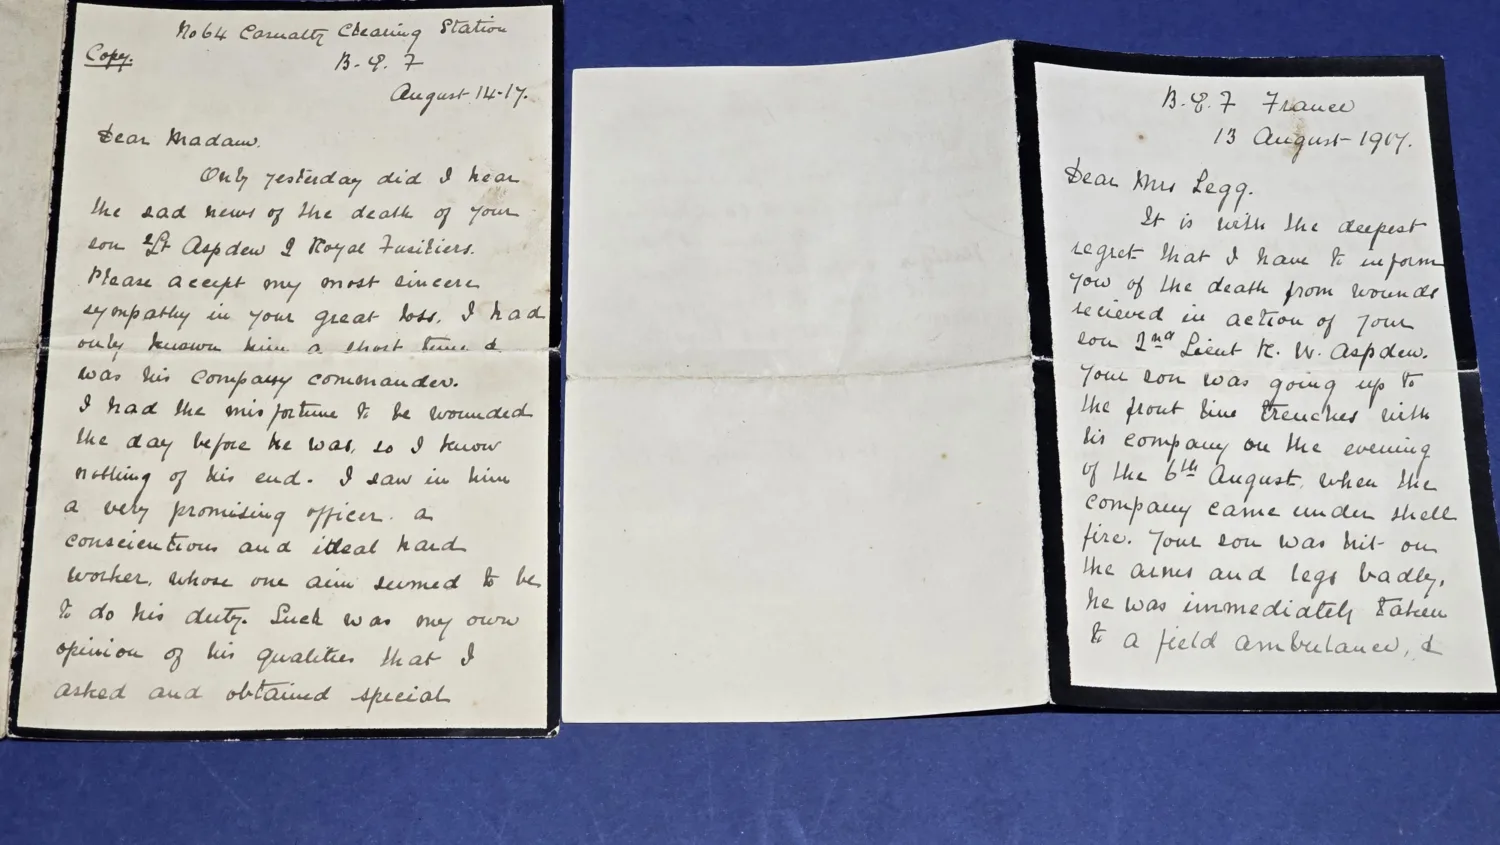 No 64 Casualty Clearing Station
Copy.
B. E. F
August 14-17.
Dear Madam.
Only yesterday did I hear
the sad news of the death of your
son 2/Lt Aspden 2 Royal Fusiliers.
Please accept my most sincere
sympathy in your great loss. I had
only known him a short time &
was his company commander.
I had the misfortune to be wounded
the day before he was, so I know
nothing of his end. I saw in him
a very promising officer. a
conscientious and ideal hard
worker, whose one aim seemed to be
to do his duty. Such was my own
opinion of his qualities that I
asked and obtained special
B. E. F France
13 August 1917.
Dear Mrs Legg.
It is with the deepest
regret that I have to inform
you of the death from wounds
recieved in action of your
son 2nd Lieut K. W. Aspden.
Your son was going up to
the front line trenches with
his company on the evening
of the 6th August, when the
company came under shell
fire. Your son was hit on
the arms and legs badly,
he was immediately taken
to a field ambulance, &